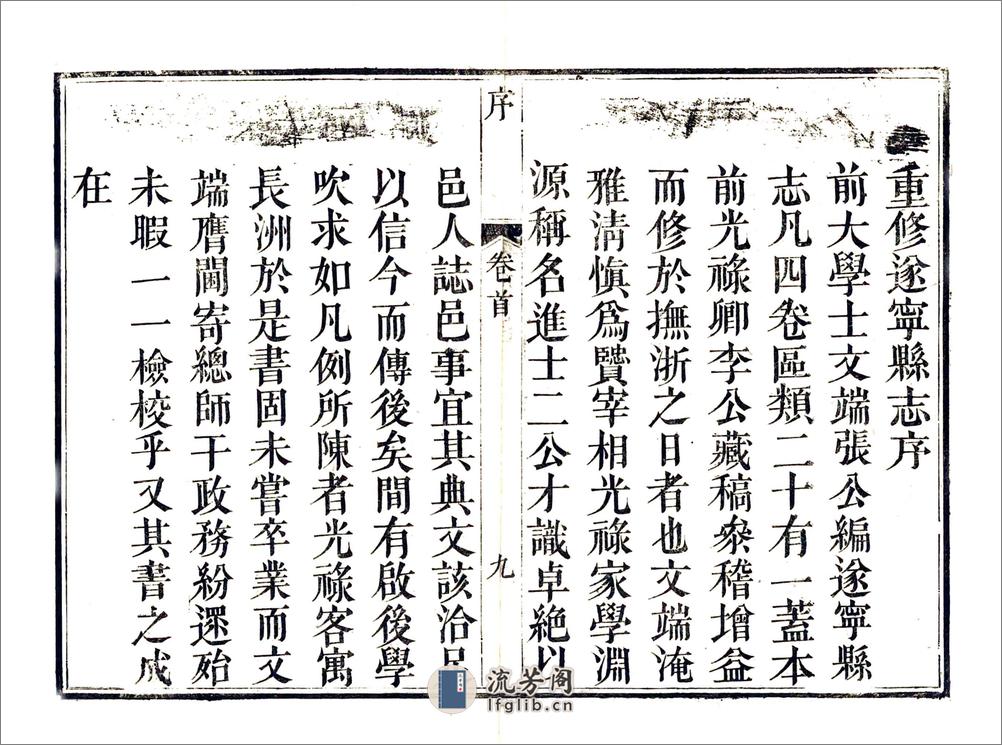 重修遂寧縣志序
前大學士文端張公編遂寧縣
志凡四卷區類二十有一蓋本
前光祿卿李公藏稿叅稽增益
而修於撫浙之日者也文端淹
雅清愼爲賢宰相光祿家學淵
源稱名進士二公才識卓絶以
序
卷首
九
邑人誌邑事宜其典文該洽足
以信今而傳後矣間有啟後學
吹求如凡例所陳者光祿客寓
長洲於是書固未嘗卒業而文
端膺閫寄總師干政務紛遝殆
未暇一一檢校乎又其書之成
在
流芳阁
lfglib.cn